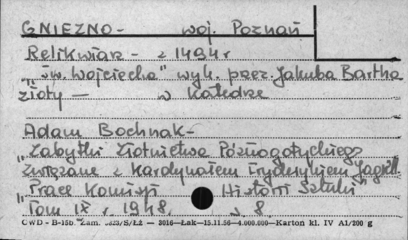 GNIEZNO - woj. Poznań
Relikwiarz - z 1494 r
"św. Wojciecha" wyk. przez Jakuba Bartha
złoty — w Katedrze
Adam Bochnak -
"Zabytki złotnictwa Późnogotyckiego
związane z Kardynałem Fryderykiem Jagiell.
"Prace Komisji Historii Sztuki"
Tom IX r. 1948. s. 8
CWD - B-15b. Zam. S/Łż — 3016—Łak—15.11.56—4.000.000—Karton kl. IV A1/200 g